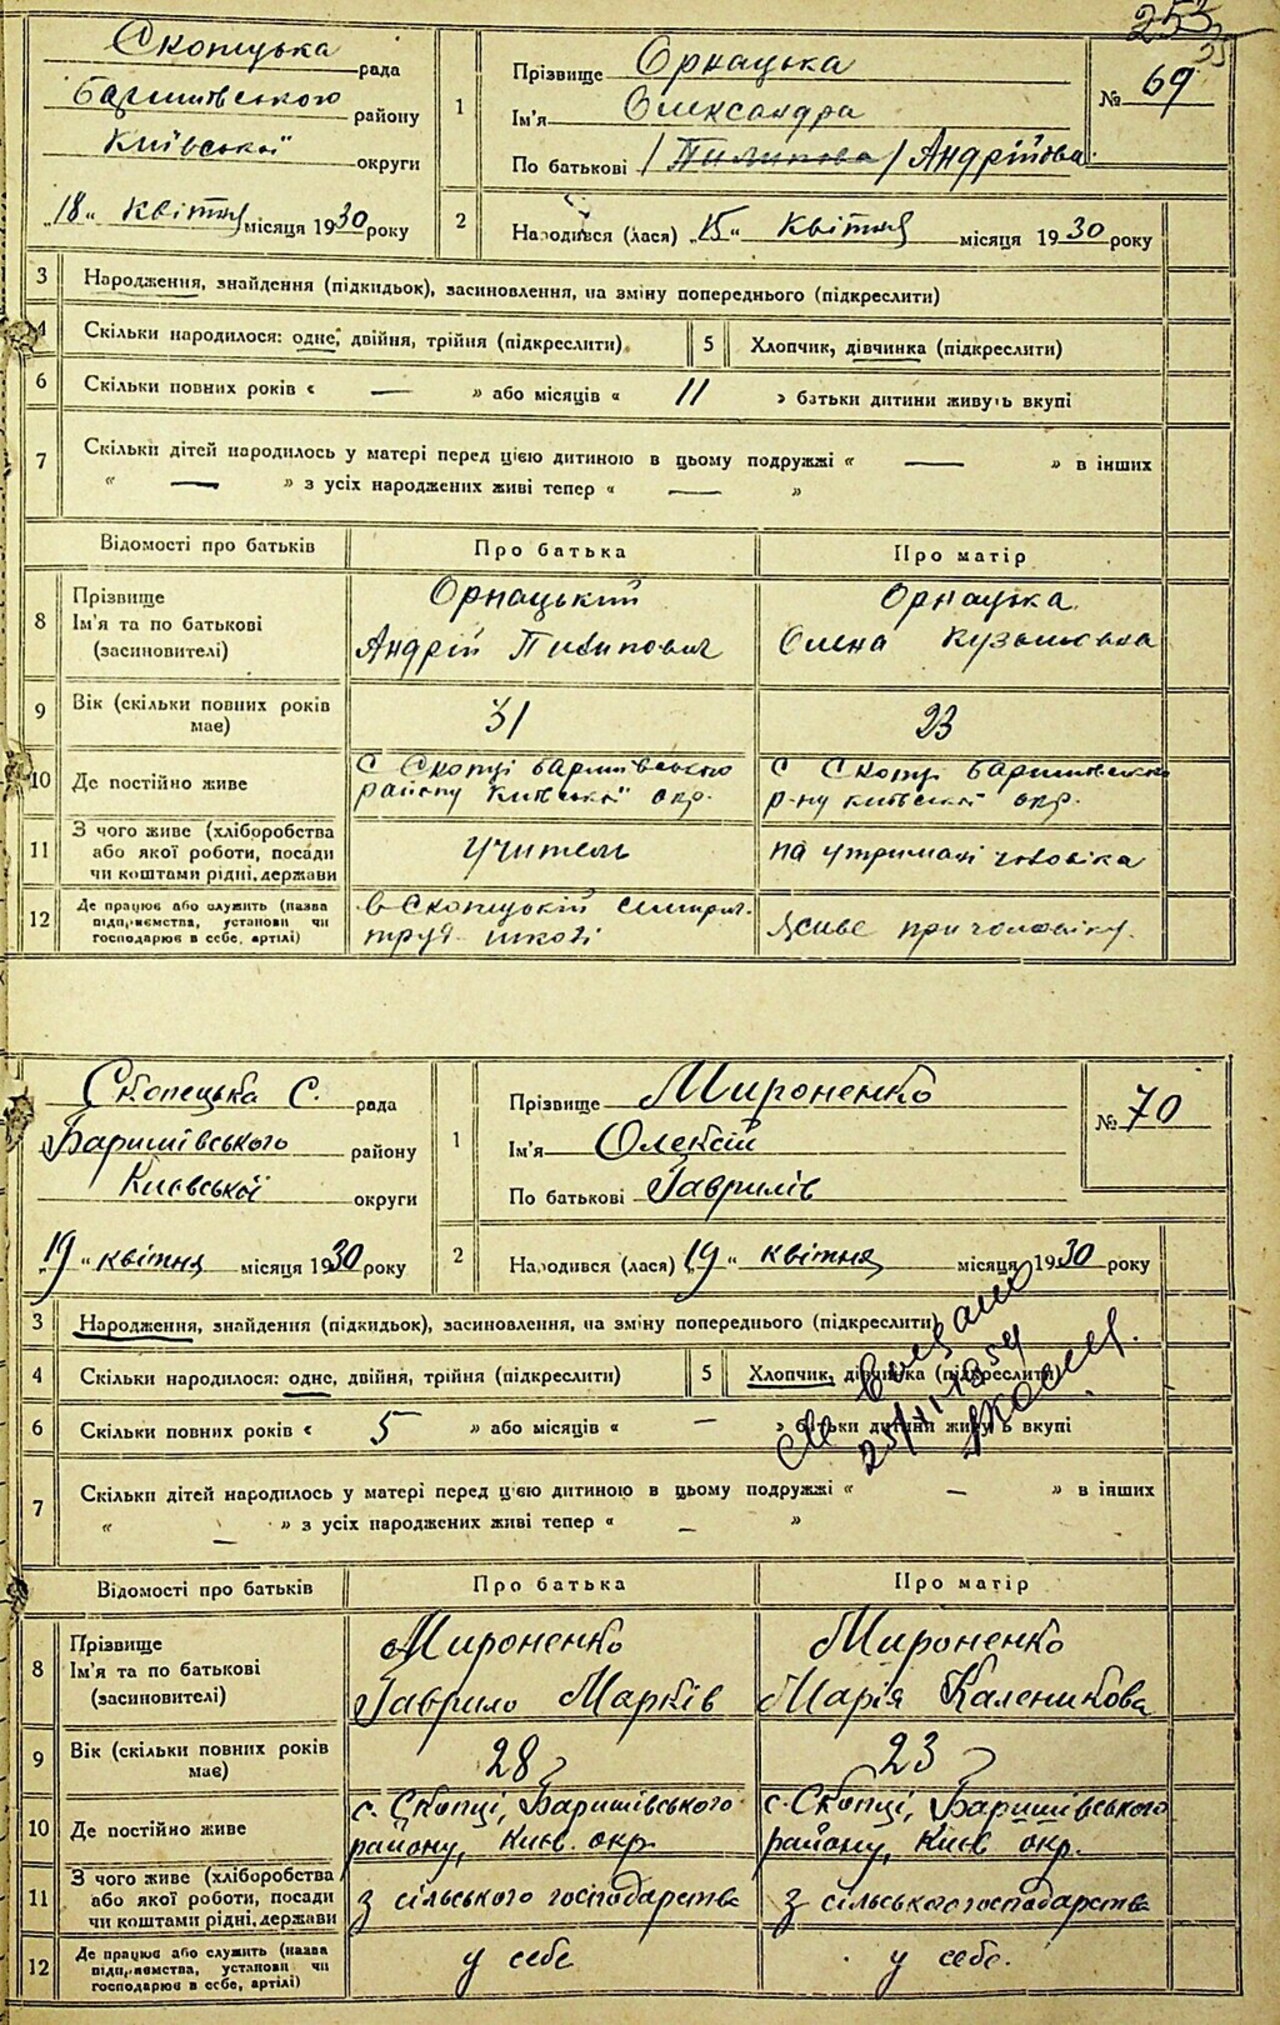 253
Скопецька рада
Баришівського району
Київської округи
„18“ квітня місяця 1930 року
1
Прізвище Орнацька
Ім'я Олександра
По батькові /Пилипова/ Андрійова
№ 69
2
Народився (лася) „15“ квітня місяця 1930 року
3 Народження, знайдення (підкидьок), засиновлення, на зміну попереднього (підкреслити)
4 Скільки народилося: одне, двійня, трійня (підкреслити)
5 Хлопчик, дівчинка (підкреслити)
6 Скільки повних років « — » або місяців « 11 » батьки дитини живуть вкупі
7 Скільки дітей народилось у матері перед цією дитиною в цьому подружжі « — » в інших
« — » з усіх народжених живі тепер « — »
Відомості про батьків Про батька Про матір
8
Прізвище
Ім'я та по батькові
(засиновителі)
Орнацький
Андрій Пилипович
Орнацька
Олена Кузьмівна
9
Вік (скільки повних років
має)
31
23
10 Де постійно живе
С Скопці Баришівського
району Київської окр.
С Скопці Баришівського
р-ну київської окр.
11
З чого живе (хліборобства
або якої роботи, посади
чи коштами рідні, держави
Учитель
на утримані чоловіка
12
Де працює або служить (назва
підприємства, установи чи
господарює в себе, артілі)
в Скопецькій
труд. школі
Живе при чоловіку.
Скопецька С. рада
Баришівського району
Києвської округи
„19“ квітня місяця 1930 року
1
Прізвище Мироненко
Ім'я Олексій
По батькові Гаврилів
№ 70
2
Народився (лася) „19“ квітня місяця 1930 року
3 Народження, знайдення (підкидьок), засиновлення, на зміну попереднього (підкреслити)
4 Скільки народилося: одне, двійня, трійня (підкреслити)
5 Хлопчик, дівчинка (підкреслити)
6 Скільки повних років « 5 » або місяців « — » батьки дитини живуть вкупі
7 Скільки дітей народилось у матері перед цією дитиною в цьому подружжі « — » в інших
« — » з усіх народжених живі тепер « — »
Відомості про батьків Про батька Про матір
8
Прізвище
Ім'я та по батькові
(засиновителі)
Мироненко
Гаврило Марків
Мироненко
Марія Каленикова
9
Вік (скільки повних років
має)
28
23
10 Де постійно живе
с. Скопці, Баришівського
району, Києв. окр.
с. Скопці, Баришівського
району, Києв окр.
11
З чого живе (хліборобства
або якої роботи, посади
чи коштами рідні, держави
З сільського господарства
З сільського господарства
12
Де працює або служить (назва
підприємства, установи чи
господарює в себе, артілі)
у себе
у себе.